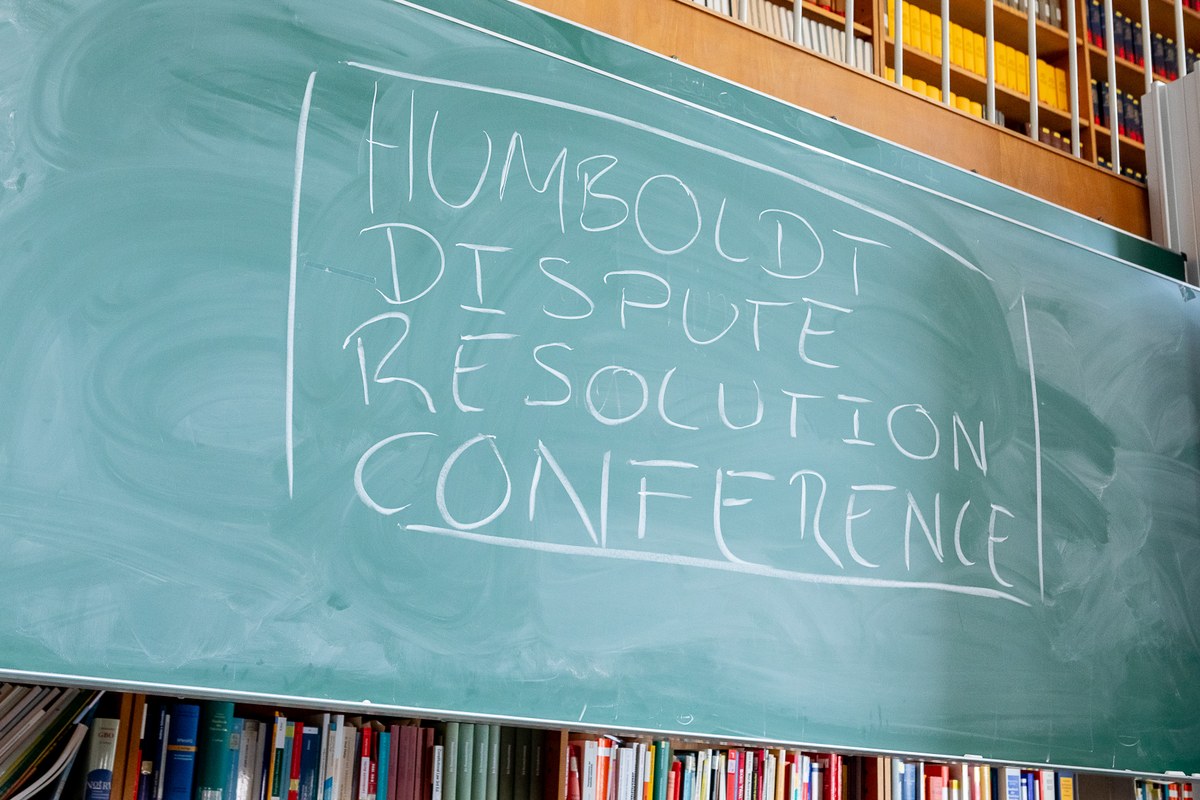 HUMBOLDT
DISPUTE
RESOLUTION
CONFERENCE